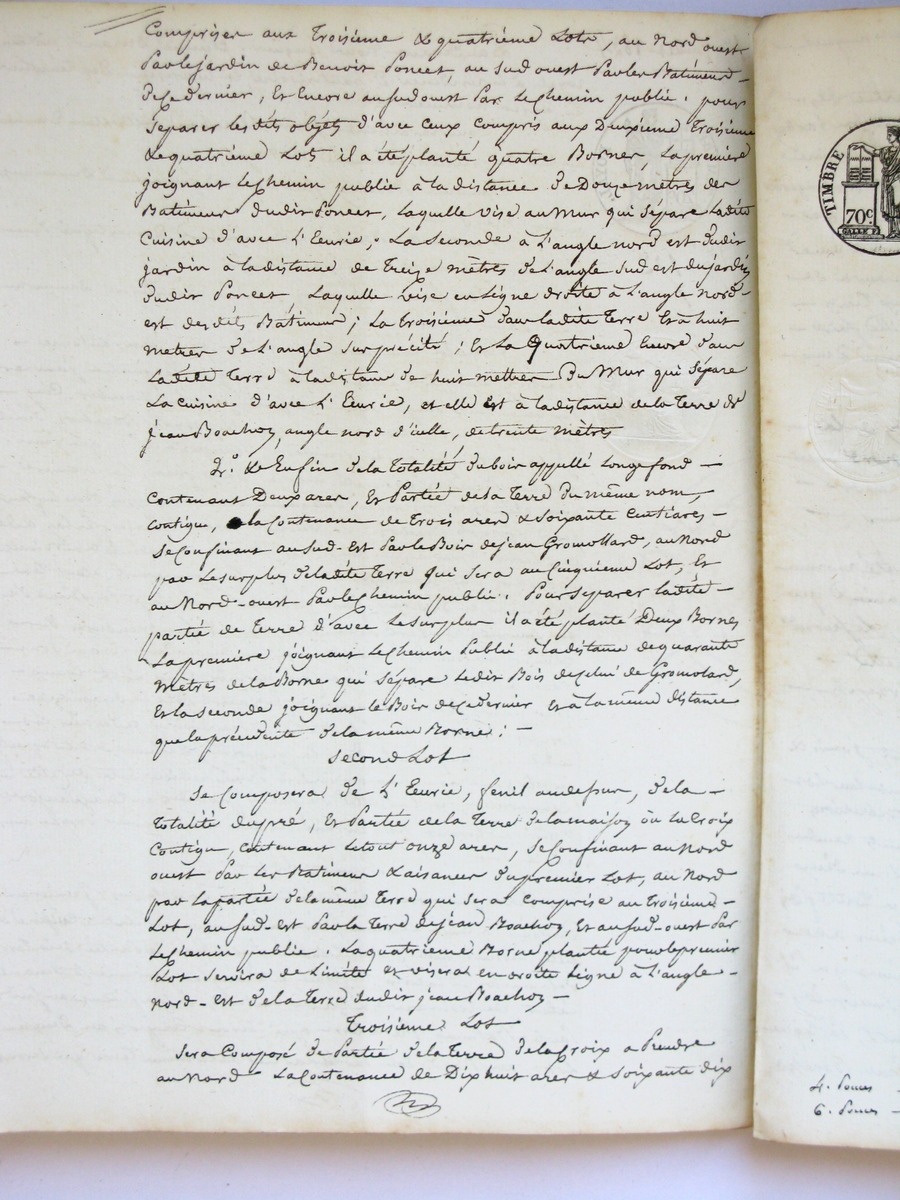 Comprises aux Troisième & quatrième Lots, au Nord ouest
Par le jardin de Benoit Poncet, au sud ouest Par les Batimens
de ce dernier, Et Encore au sud ouest Par Le Chemin public. pour
Séparer les dits objets d'avec ceux compris aux Deuxième Troisième
& quatrième Lots il a été planté quatre Bornes, La première
joignant Le Chemin public à la distance de Douze mètres des
Batimens dudit Poncet, Laquelle vise au Mur qui Sépare Ladite
Cuisine d'avec L'Ecurie, La Seconde à L'angle nord est dudit
jardin à la distance de Treize mètres de L'angle Sud est du jardin
dudit Poncet, Laquelle vise en Ligne droite à L'angle Nord-
est des dits Batimens; La troisième dans ladite Terre Et à huit
metres de L'angle Susprécité; Et La Quatrième Encore dans
Ladite Terre à la distance de huit mettres Du Mur qui Sépare
La Cuisine d'avec L'Ecurie, et elle Est à la distance de la Terre de
jean Boachon, angle nord d'icelle, de trente mètres
2.° & Enfin de la Totalité du bois appellé Longe fond —
Contenant Deux ares, Et Partie de la Terre du même nom,
Contigue, la Contenance de Trois ares & Soixante Centiares —
Se Confinant au Sud-Est Par le Bois de jean Gromollard, au Nord
par Le surplus de ladite Terre qui Sera au Cinquième Lot, Et
au Nord-ouest Par le Chemin public. Pour séparer ladite —
partie de Terre d'avec Le surplus il a été planté Deux Bornes
La première joignant Le Chemin Public à la distance de quarante
mètres de la Borne qui Sépare Ledit Bois de celui de Gromolard,
Et la Seconde joignant le Bois de ce dernier Et à la même distance
que la précédente de la même Borne; —
Second Lot
Se Composera de L'Ecurie, fenil au dessus, de la —
Totalité du pré, Et Partie de la Terre de la maison ou La Croix
Contigue, Contenant Le tout onze ares, Se Confinant au Nord
ouest Par Les Batimens & aisances du premier Lot, au Nord
par la partie de la même Terre qui Sera Comprise au Troisième —
Lot, au Sud-Est Par la Terre de jean Boachon, Et au Sud-ouest Par
Le Chemin public. La quatrième Borne plantée pour le premier
Lot Servira de Limite et visera en droite Ligne à L'angle —
Nord-Est de la Terre dudit jean Boachon —
Troisième Lot
Sera Composé de Partie de la Terre de la Croix a Prendre
au Nord La Contenance de Dix huit ares & Soixante dix
TIMBRE
70c
4. Pouces
6. Pouces